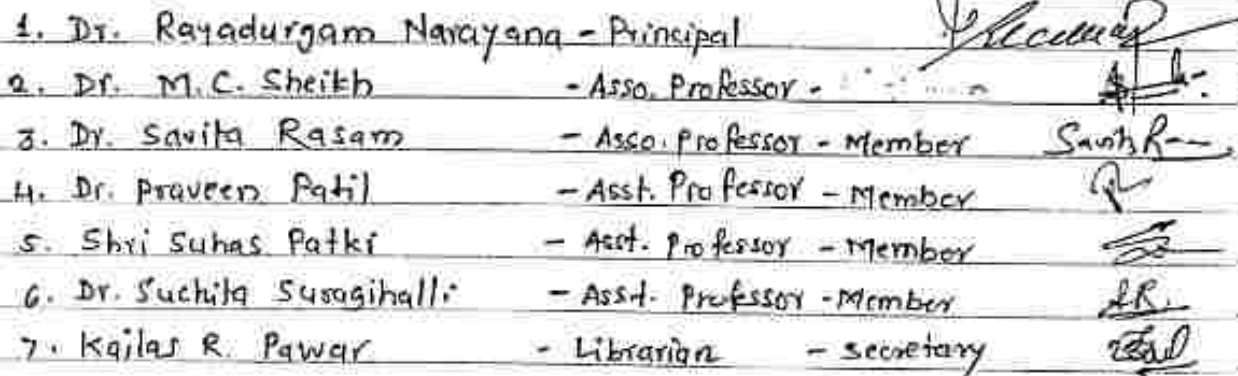 1. Dr. Rayadurgam Narayana - Principal
2. Dr. M.C. Sheikh - Asso. Professor -
3. Dr. Savita Rasam - Asso. Professor - Member
4. Dr. Praveen Patil - Asst. Professor - Member
5. Shri Suhas Patki - Asst. Professor - Member
6. Dr. Suchita Suragihalli - Asst. Professor - Member
7. Kailas R. Pawar - Librarian - Secretary